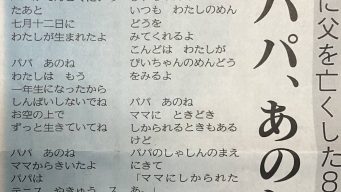 に父を亡くした8
パパ、あの
たあと
七月十二日に
わたしが生まれたよ
パパ あのね
わたしは もう
一年生になったから
しんぱいしないでね
お空の上で
ずっと生きていてね
パパ あのね
ママからきいたよ
パパは
テニス やきゅう ス
いつも わたしのめん
どうを
みてくれるよ
こんどは わたしが
ぴいちゃんのめんどう
をみるよ
パパ あのね
ママに ときどき
しかられるときもある
けど
パパのしゃしんのまえ
にきて
「ママにしかられた
あ。」